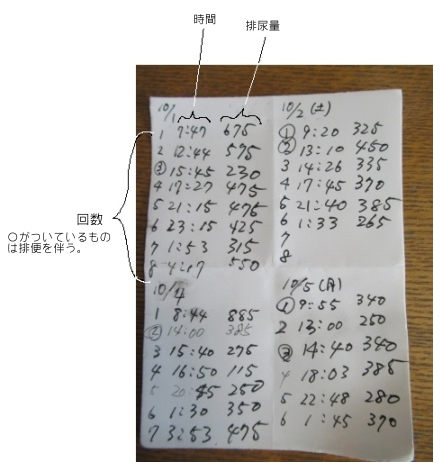 時間
排尿量
回数
〇がついているもの
は排便を伴う。
10/1
1 7:47 675
2 12:44 575
③ 15:45 230
4 17:27 475
5 21:15 475
6 23:15 425
7 1:53 315
8 4:17 550
10/2 (土)
① 9:20 325
② 13:10 450
3 14:26 335
4 17:45 370
5 21:40 385
6 1:33 265
7
8
10/4
1 8:44 885
② 14:00 385
3 15:40 275
4 16:50 115
5 20:45 250
6 1:30 350
7 3:53 475
10/5 (月)
① 9:55 340
2 13:00 250
③ 14:40 340
4 18:03 385
5 22:48 280
6 1:45 370